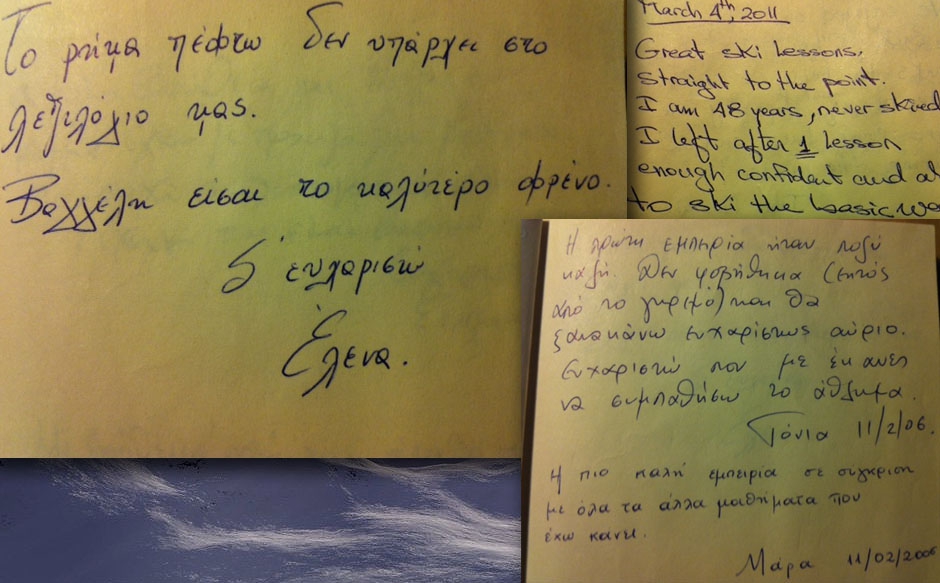 Το ρήμα πέφτω δεν υπάρχει στο
λεξιλόγιο μας.
Βαγγέλη είσαι το καλύτερο φρένο.
Σ' ευχαριστώ
Έλενα.
March 4th, 2011
Great ski lessons,
straight to the point.
I am 48 years, never skied
I left after 1 lesson
enough confident and ab
to ski the basic wa
Η πρώτη εμπειρία ήταν πολύ
καλή. Δεν φοβήθηκα (εκτός
από το γκρεμό) και θα
ξανακάνω ευχαρίστως αύριο.
Ευχαριστώ που με έκανες
να συμπαθήσω το άθλημα.
Τόνια 11/2/06.
Η πιο καλή εμπειρία σε σύγκριση
με όλα τα άλλα μαθήματα που
έχω κάνει.
Μάρα 11/02/2006